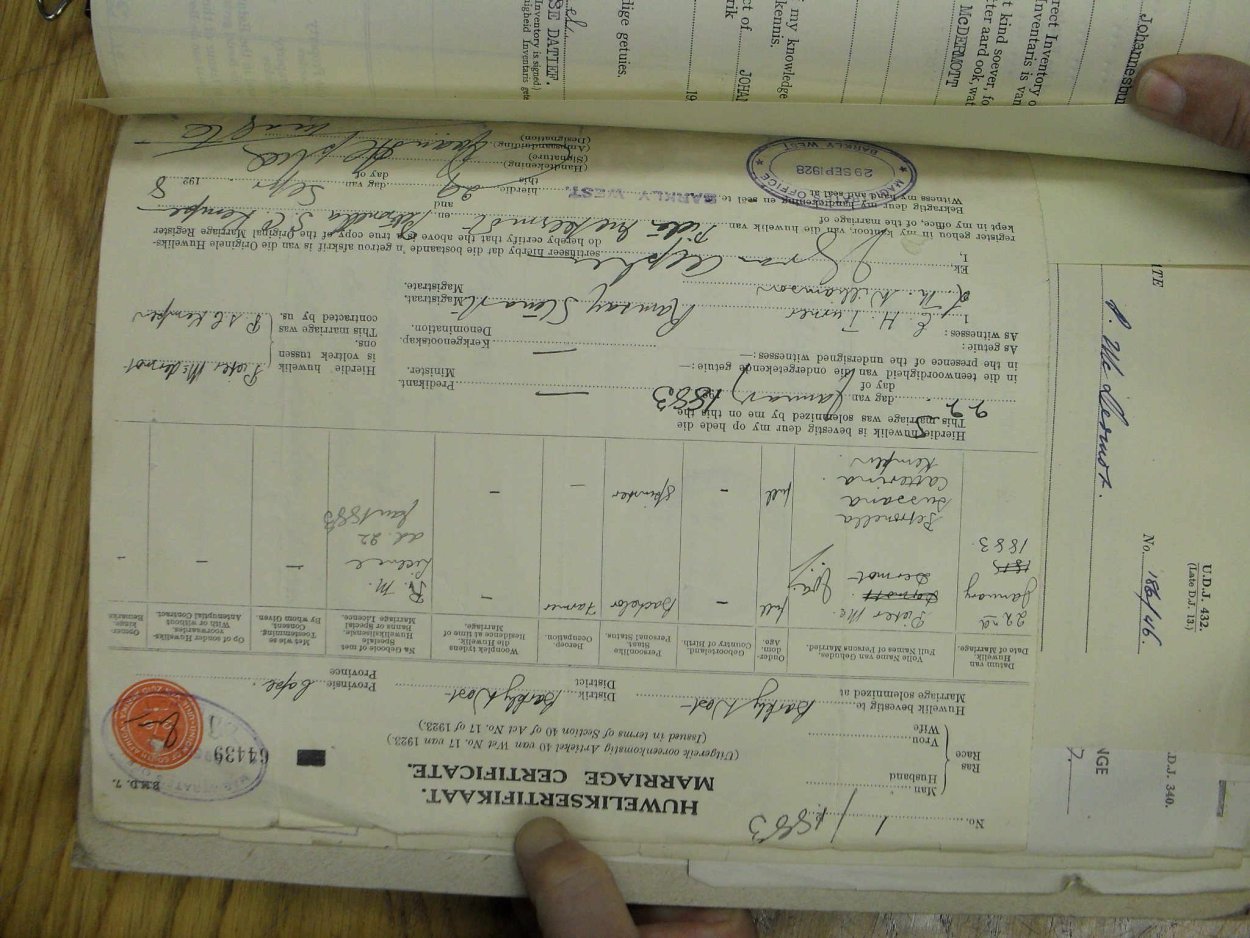 No. 1/1883
HUWELIKSERTIFIKAAT.
MARRIAGE CERTIFICATE.
(Uitgereik ooreenkomstig Artiekel 40 van Wet No. 17 van 1923.)
(Issued in terms of Section 40 of Act No. 17 of 1923.)
B.M.D. 7.
64439
Ras
Race
Man
Husband
Vrou
Wife
Huwelik bevestig te
Marriage solemnized at Barkly West
Distrik
District Barkly West
Provinsie
Province Cape.
Datum van Huwelik.
Date of Marriage.
Volle Name van Gehudes.
Full Names of Persons Married.
Ouderdom.
Age.
Geboorteland.
Country of Birth.
Persoonlike Staat.
Personal Status.
Beroep.
Occupation.
Woonplek tydens die Huwelik.
Residence at time of Marriage.
Na Geboole of met Spesiale Huwelikslisensie.
Banns or Special Marriage Licence.
Met wie se Toestemming.
Consent, by whom Given.
Op of sonder Huweliks-voorwaardes.
With or without Antenuptial Contract.
Opmerkings.
Remarks
22nd January 1883.
Pieter Mc Dermot
full
-
Bachelor
Farmer
-
R. M. Licence dd. 22 Jan 1883
-
-
-
Petronella Sussana Catterina Kemper.
full
-
Spinster
-
-
Hierdie huwelik is bevestig deur my op hede die
This marriage was solemnized by me on this the
22 dag van
day of January 1883
in die teenwoordigheid van die ondergetekende getuie:—
in the presence of the undersigned witnesses:—
As getuie:
As witnesses:
1. E. H. Turner
2. M. Williamson
Predikant.
Minister.
Kerkgenootskap.
Denomination.
Magistraat.
Magistrate.
Ramsay
Hierdie huwelik is voltrek tussen ons.
This marriage was contracted by us.
Pieter Mc Dermot
P S C Kemper
Ek
I,
sertifiseer hierby dat die bostaande 'n getrou afskrif is van die Originele Huweliks-
do hereby certify that the above is a true copy of the Original Marriage Register
register gehou in my kantoor, van die huwelik van
kept in my office, of the marriage of
en Petronella S C Kemper
and
Bekragtig deur my handtekening en seël te
Witness my hand and seal at BARKLY WEST.
hierdie 29 dag van Sept. 192 8
this day of
(Handtekening)
(Signature)
(Ampsaanduiding)
(Designation)
29 SEP 1928
BARKLY WEST
U.D.J. 432.
(Late D.J. 13.)
No. 186/46.
P. Mc Dermot.
.D.J. 340.
NGE
ATE
Johannesbu
rrect Inventory o
Inventaris is van
t kind soever, fo
ter aard ook, wat
McDERMOTT
f my knowledge
kennis.
ct of
rik
JOHAN
19
dige getuies.
SE DATIEF.
Inventory is signed)